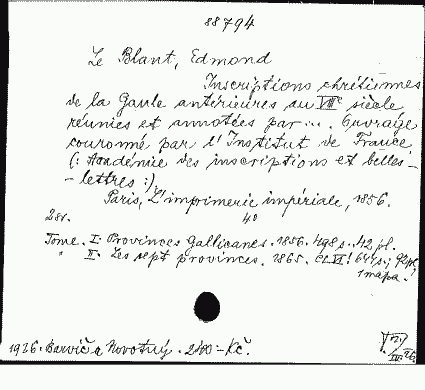 88794
Le Blant, Edmond
Inscriptions chrétiennes
de la Gaule antérieures au VIIIe siècle
réunies et annotées par ... Ouvrage
couronné par l'Institut de France
(: Académie des inscriptions et belles-
-lettres :)
Paris, L'imprimerie impériale, 1856.
2 sv. 4°
Tome. I. Provinces Gallicanes. 1856. 498 s. 42 pl.
" II. Les sept provinces. 1865. CLVI! 644 s., 92 pl.
1 mapa.
1926. Barvič a Novotný. 2100 - Kč.